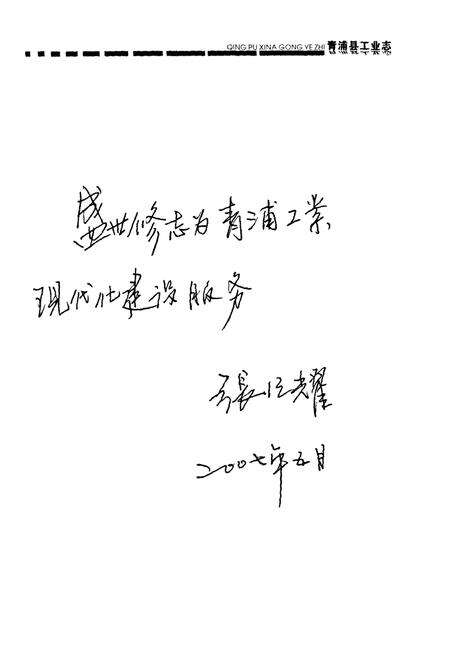 QING PU XINA GONG YE ZHI 青浦县工业志
盛世修志为青浦工业
现代化建设服务
張仁耀
二00七年五月